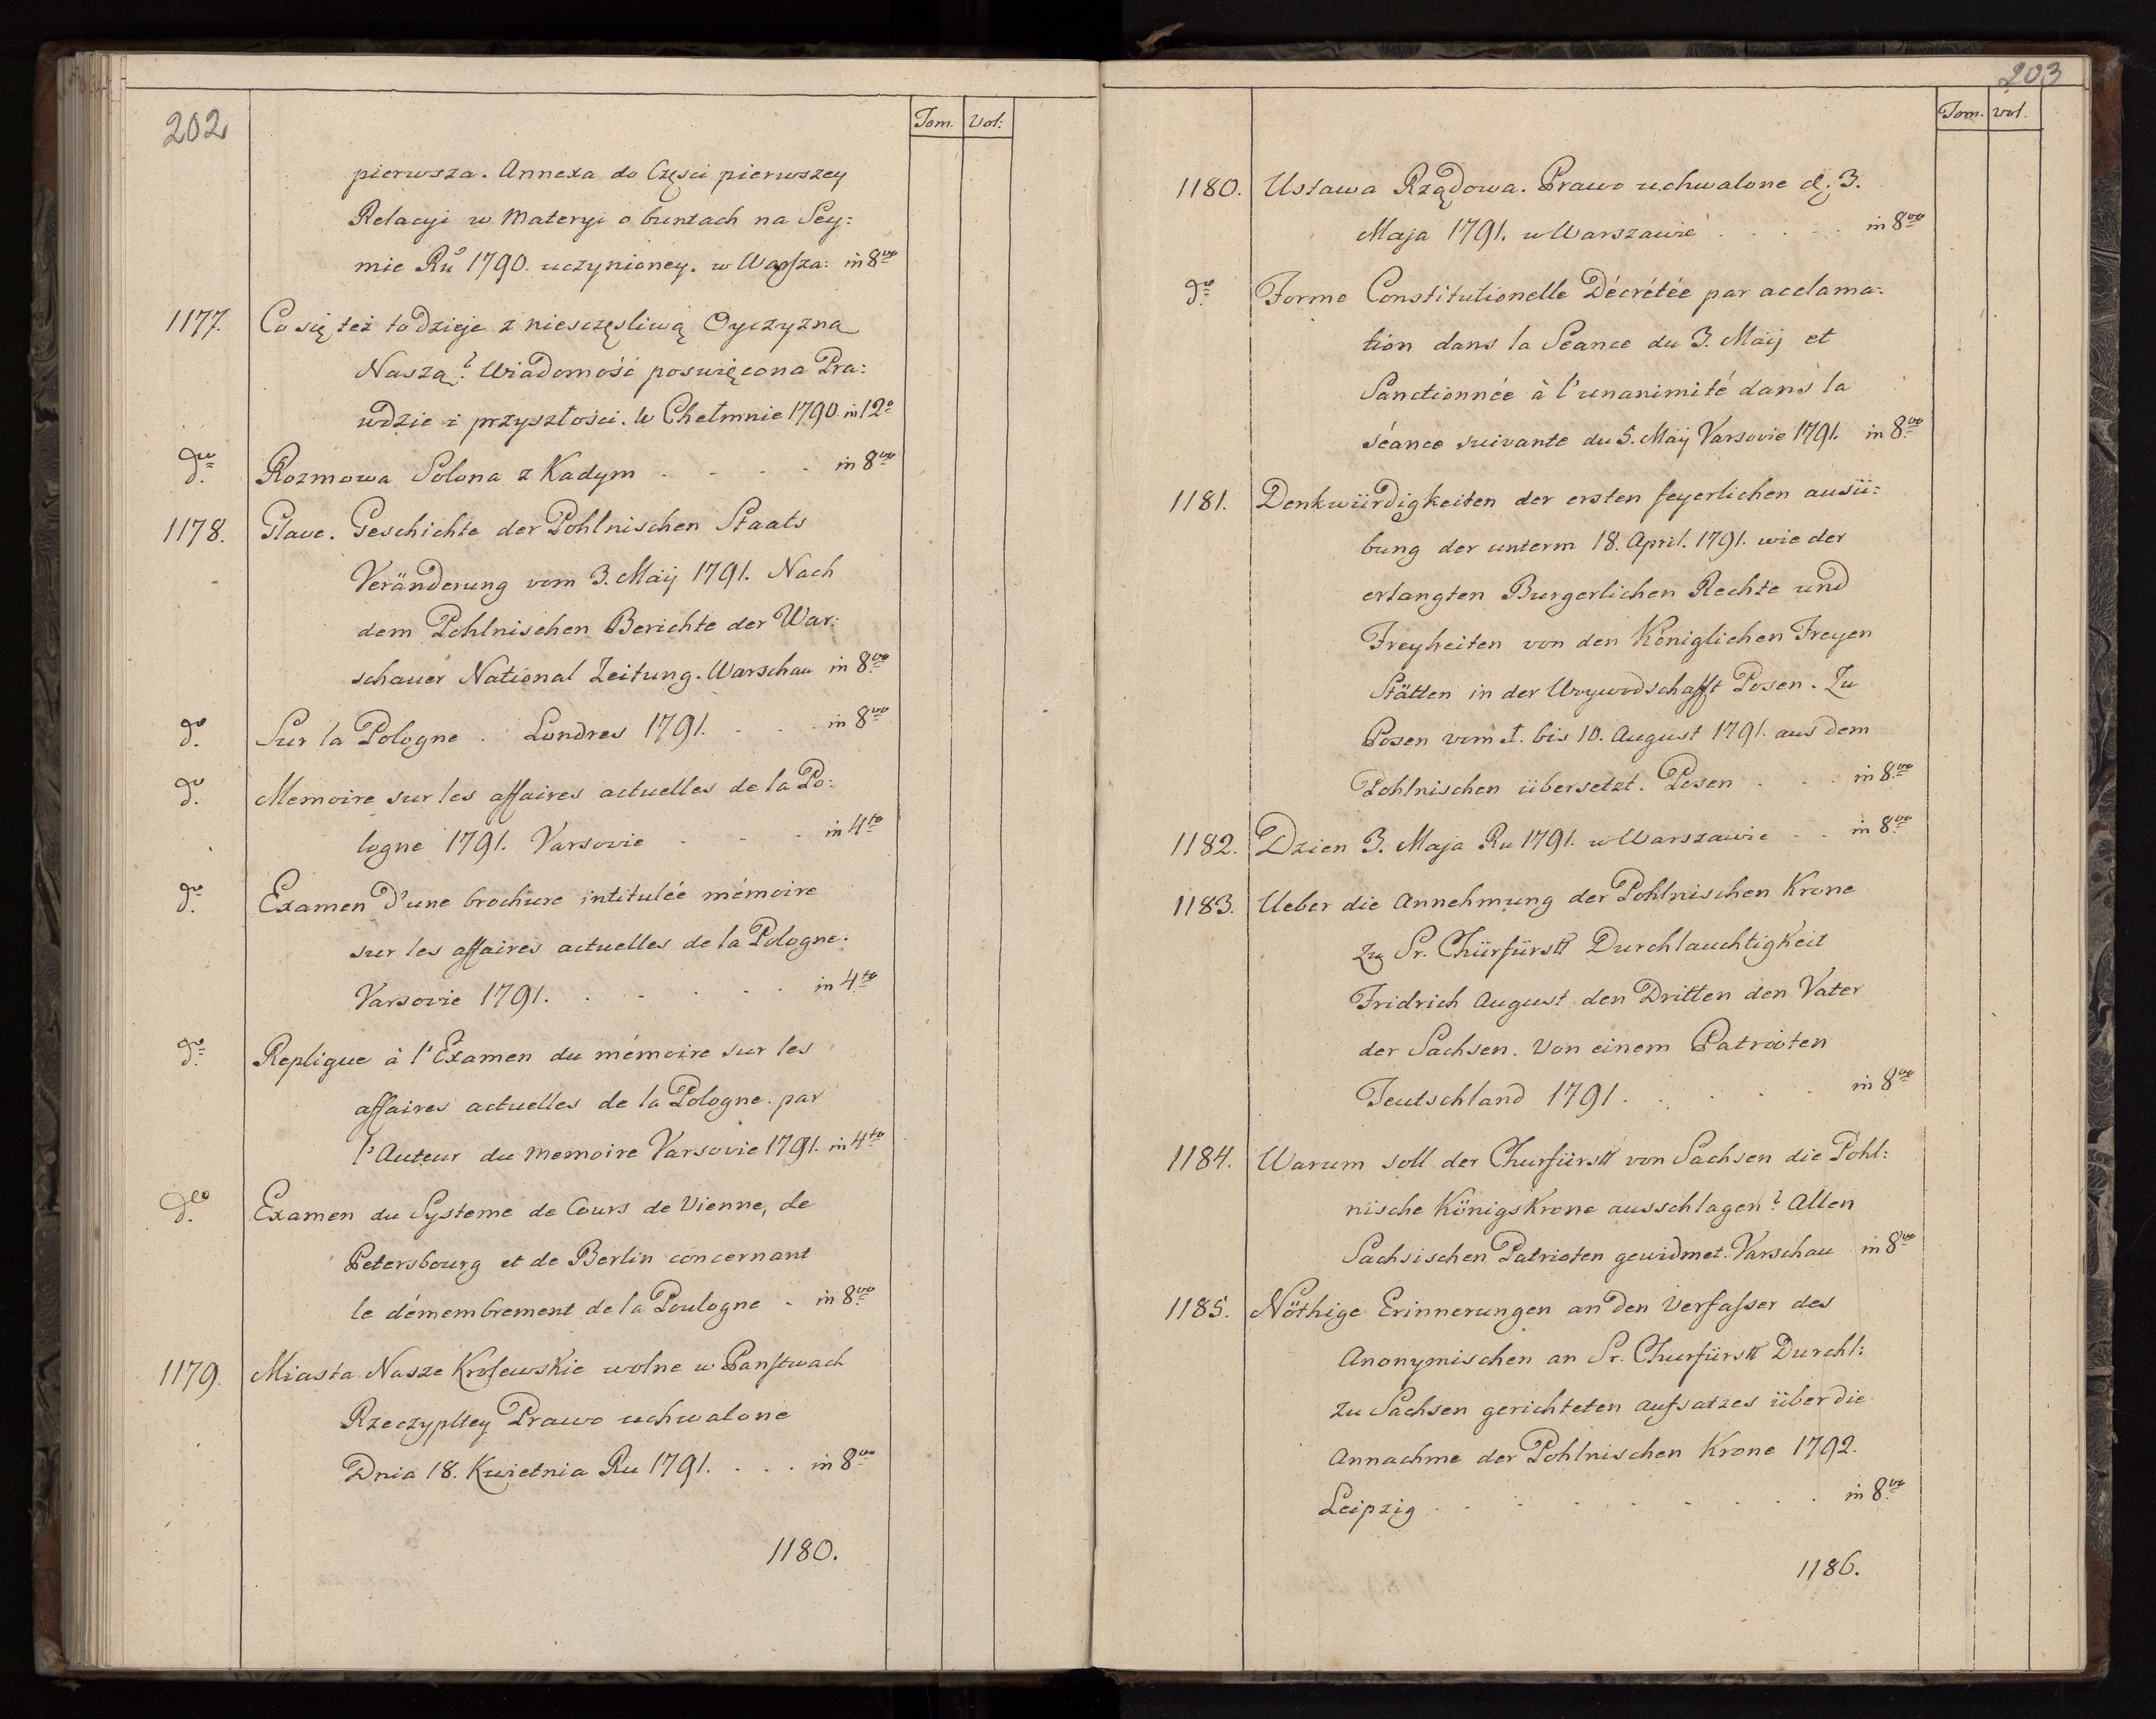 202
Tom. Vol:
pierwsza. Annexa do Częsci pierwszey
Relacyi w Materyi o buntach na Sey:
mie Rũ 1790. uczynioney. w Warsza: in 8vo
1177. Co się też to dzieje z niesczęsliwą Oyczyzną
Naszą? Wiadomość poswięcona Pra:
wdzie i przyszłości. w Chełmnie 1790. in 12o
do Rozmowa Solona z Kadym . . . . in 8vo
1178. Glave. Geschichte der Pohlnischen Staats
Veränderung vom 3. Maij 1791. Nach
dem Pohlnischen Berichte der War:
schauer National Zeitung. Warschau in 8vo
do Sur la Pologne . Londres 1791. . . in 8vo
do Memoire sur les affaires actuelles de la Po:
logne 1791. Varsovie . . . in 4to
do Examen d'une brochure intitulée mémoire
sur les affaires actuelles de la Pologne.
Varsovie 1791. . . . . . in 4to
do Replique à l'Examen du mémoire sur les
affaires actuelles de la Pologne. par
l'Auteur du memoire Varsovie 1791. in 4to
dto Examen du Systeme de Cours de Vienne, de
Petersbourg et de Berlin concernant
le démembrement de la Poulogne . in 8vo
1179. Miasta Nasze Krolewskie wolne w Panstwach
Rzeczypltey Prawo uchwalone
Dnia 18. Kwietnia Ru 1791. . . . in 8vo
1180.
203
Tom. vol.
1180. Ustawa Rządowa. Prawo uchwalone d. 3.
Maja 1791. w Warszawie . . . . . in 8vo
do Forme Constitutionelle Décrétée par acclama:
tion dans la Seance du 3. Maij et
Sanctionnée à l'unanimité dans la
séance suivante du 5. Maij Varsovie 1791. in 8vo
1181. Denkwürdigkeiten der ersten feyerlichen ausü:
bung der unterm 18. April. 1791. wie der
erlangten Burgerlichen Rechte und
Freyheiten von den Königlichen Freyen
Stätten in der Woywodschafft Posen. Zu
Posen vom 1. bis 10. August 1791. aus dem
Pohlnischen übersetzt. Posen . . . in 8vo
1182. Dzien 3. Maja Ru 1791. w Warszawie . . in 8vo
1183. Ueber die Annehmung der Pohlnischen Krone
Zu Sr. Chürfürstl Durchlauchtigkeit
Fridrich August den Dritten den Vater
der Sachsen. Von einem Patrioten
Teutschland 1791. . . . . in 8vo
1184. Warum soll der Churfürstl von Sachsen die Pohl:
nische Königskrone ausschlagen? Allen
Sachsischen Patrioten gewidmet. Varschau in 8vo
1185. Nöthige Erinnerungen an den Verfasser des
Anonymischen an Sr. Churfürstl Durchl:
zu Sachsen gerichteten aufsatzes über die
Annachme der Pohlnischen Krone 1792.
Leipzig . . . . . . . . in 8vo
1186.